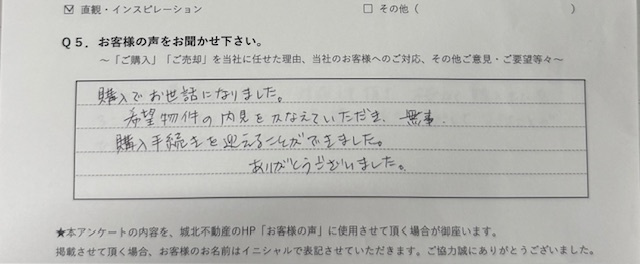 ☑ 直観・インスピレーション □ その他（ ）
Q５．お客様の声をお聞かせ下さい。
～「ご購入」「ご売却」を当社に任せた理由、当社のお客様へのご対応、その他ご意見・ご要望等々～
購入でお世話になりました。
希望物件の内見をかなえていただき、無事、
購入手続きを迎えることができました。
ありがとうございました。
★本アンケートの内容を、城北不動産のHP「お客様の声」に使用させて頂く場合が御座います。
掲載させて頂く場合、お客様のお名前はイニシャルで表記させていただきます。ご協力誠にありがとうございました。